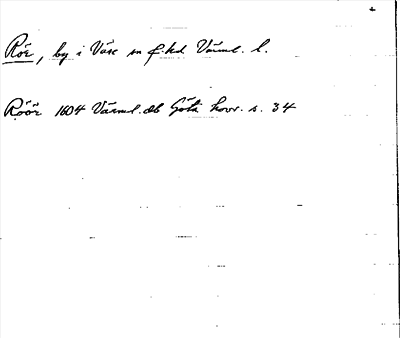 Rör, by i Väse sn f.hd Värml. l.
Röör 1604 Värml. db Göta hovr. s. 34